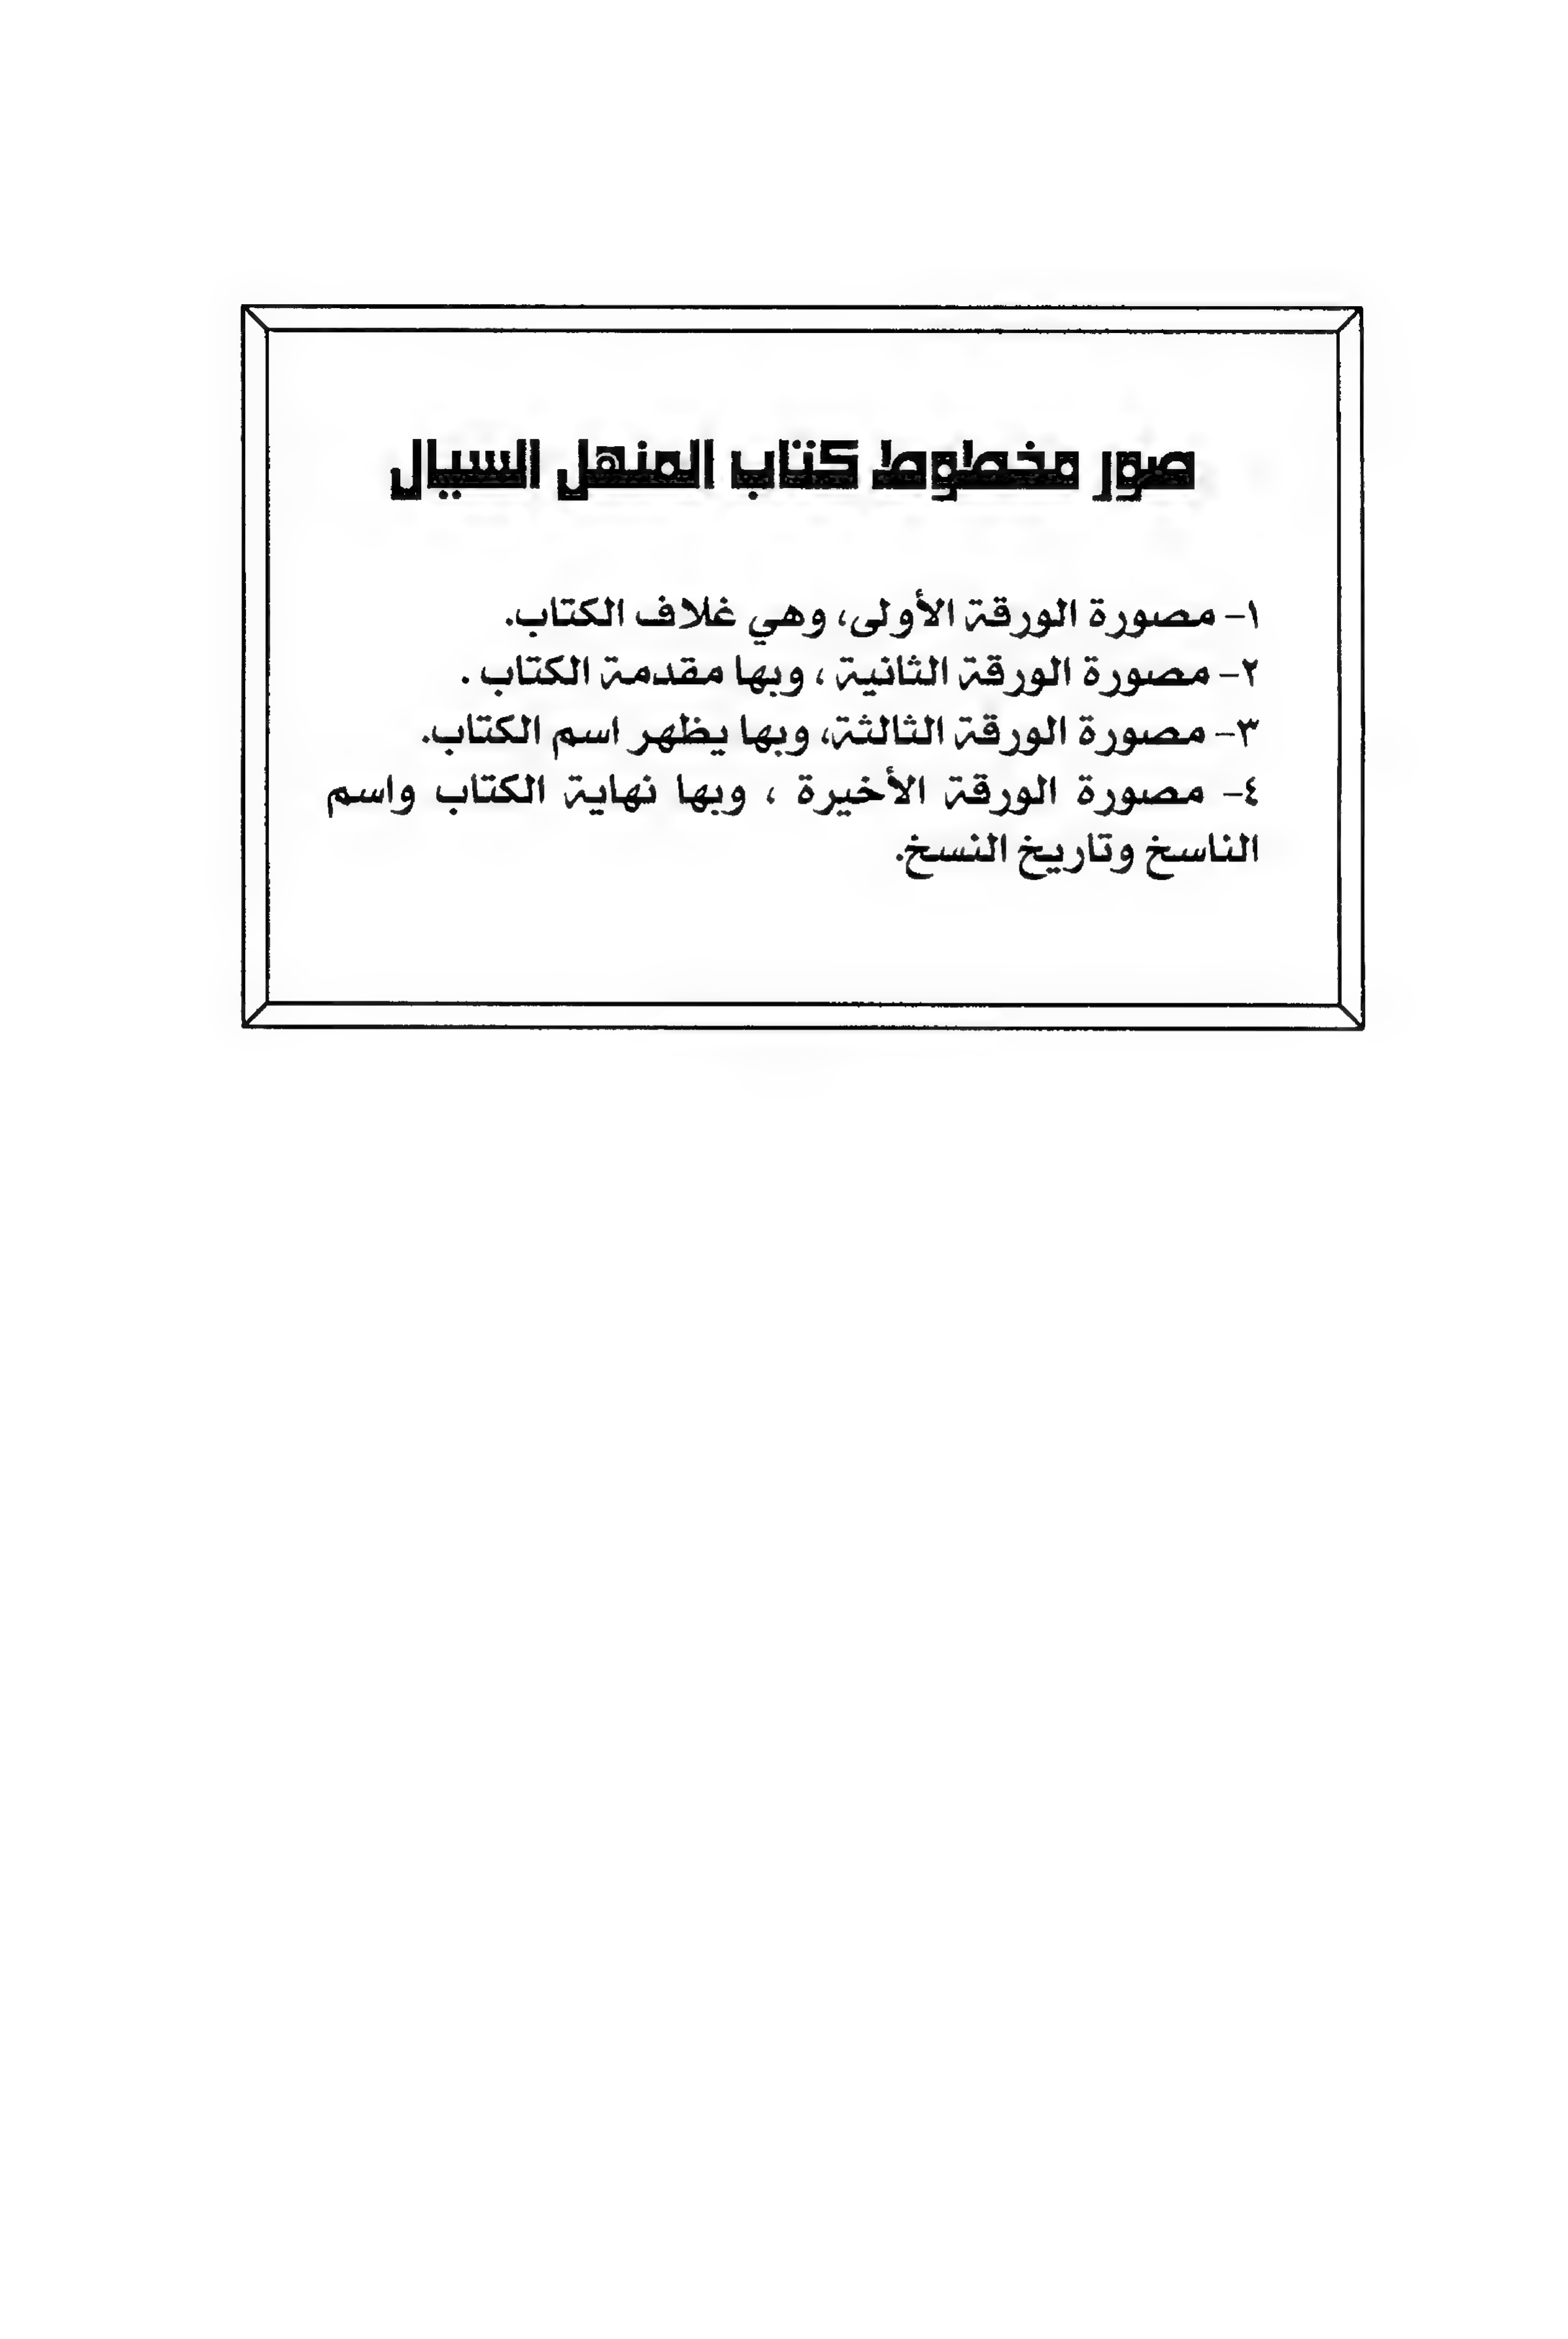 صور مخطوط كتاب المنهل السيال
١- مصورة الورقة الأولى، وهي غلاف الكتاب.
٢- مصورة الورقة الثانية ، وبها مقدمة الكتاب .
٣- مصورة الورقة الثالثة، وبها يظهر اسم الكتاب.
٤- مصورة الورقة الأخيرة ، وبها نهاية الكتاب واسم
الناسخ وتاريخ النسخ.